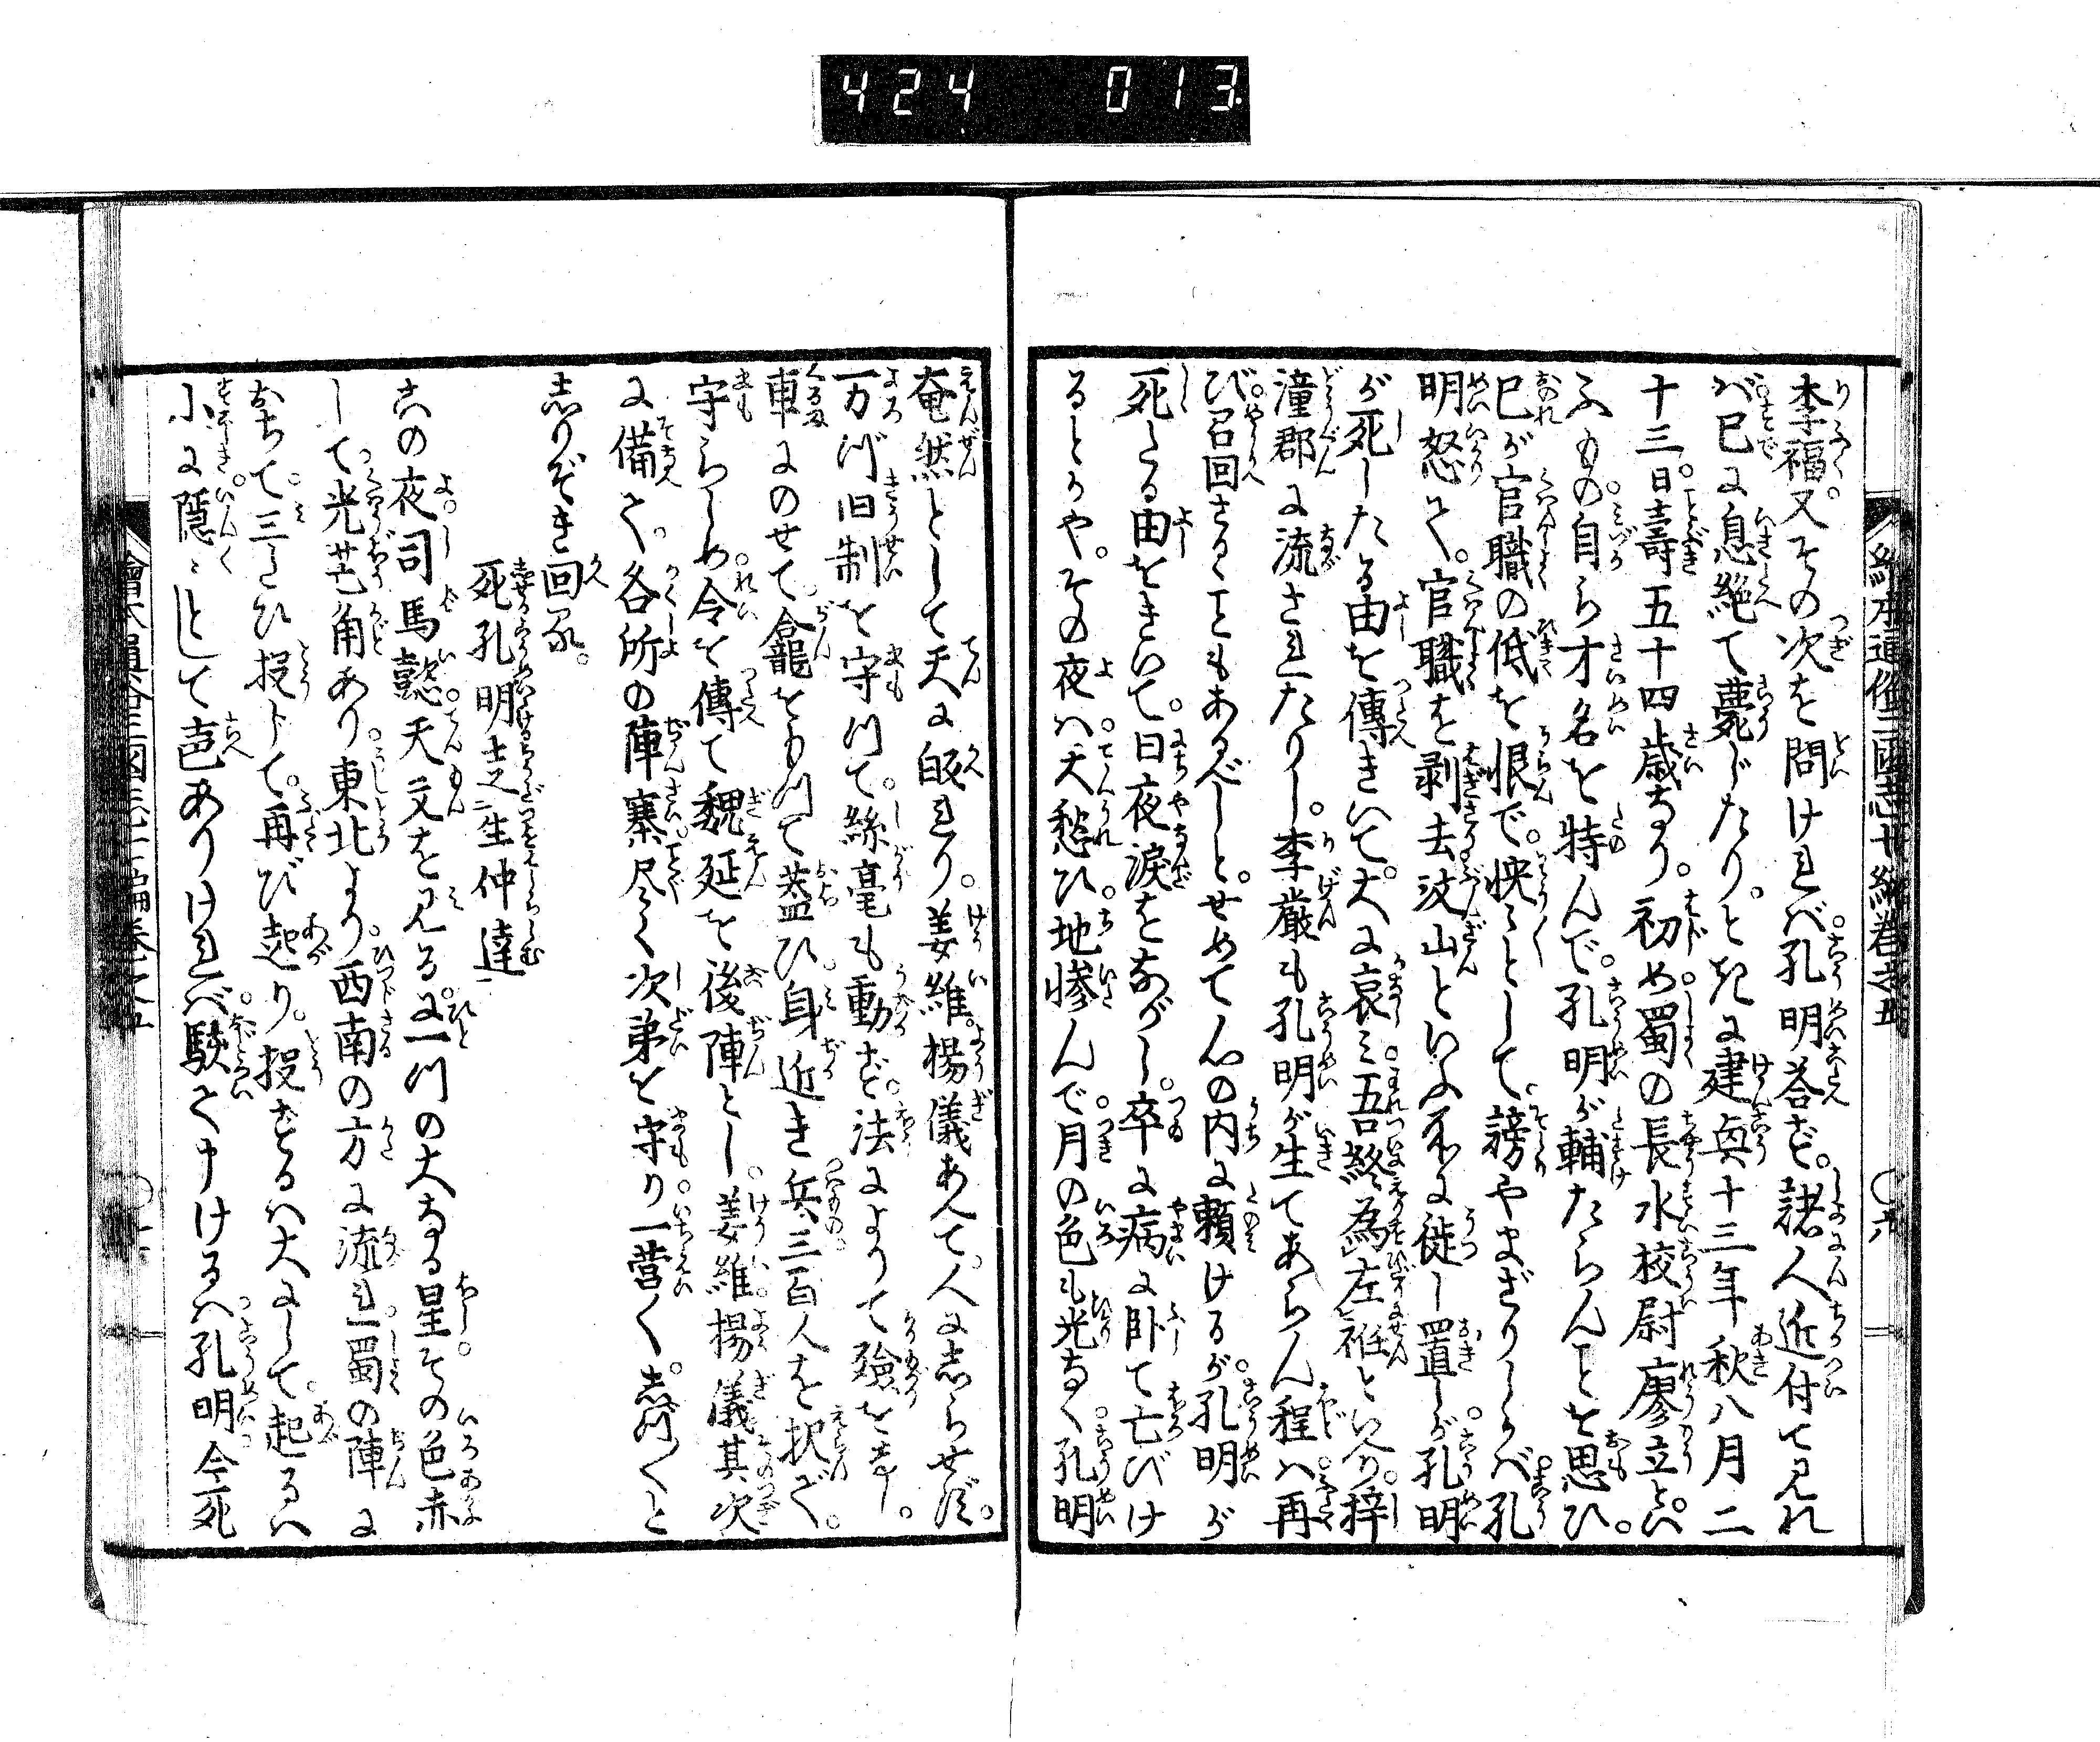 424 013
李福又その次を問けれバ孔明荅ず諸人近付て見れ
バ已に息絶て薨じたりときに建興十三年秋八月二
十三日壽五十四歳なり初め蜀の長水校尉廖立とい
ふもの自ら才名を恃んで孔明が輔たらんことを思ひ
己が官職の低を恨で怏々として謗やまざりしかバ孔
明怒て官職を剥去汶山といふ所に徙し置しが孔明
が死したる由を傳きいて大に哀み吾終為左袵といへり梓
潼郡に流されたりし李嚴も孔明が生てあらん程ハ再
び召回さるゝこともあるべしとせめて心の内に頼けるが孔明が
死したる由をきいて日夜涙をながし卒に病に臥て亡びけ
るとかやその夜ハ天愁ひ地惨んで月の色も光なく孔明
奄然として天に皈れり姜維楊儀あへて人にしらせず
一万づ旧制を守つて絲毫も動ぜず法によりて殮をなし
車にのせて龕をもつて蓋ひ身近き兵三百人を択で
守らしめ令を傳て魏延を後陣とし姜維楊儀其次
に備て各所の陣寨尽く次第を守り一營々々しづ〳〵と
しりぞき回る
死孔明走生仲達
この夜司馬懿天文を見るに一つの大なる星その色赤
して光芒角あり東北より西南の方に流れ蜀の陣に
おちて三たび投下て再び起り投ずるハ大にして起るハ
小に隠々として声ありけれバ駭て申けるハ孔明今死
繪本通俗三國志七編卷之五
○六